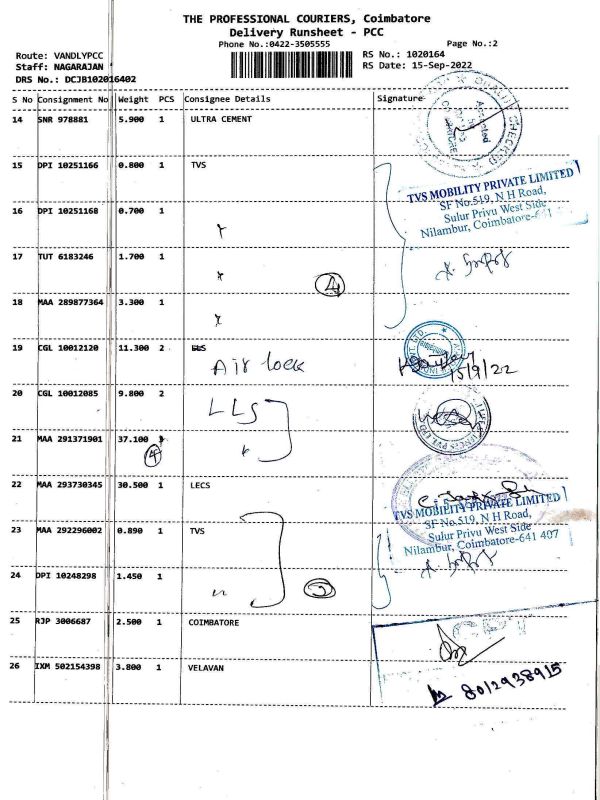 THE PROFESSIONAL COURIERS, Coimbatore
Delivery Runsheet - PCC
Phone No.:0422-3505555 Page No.:2
Route: VANDLYPCC RS No.: 1020164
Staff: NAGARAJAN RS Date: 15-Sep-2022
DRS No.: DCJB102016402
S No Consignment No Weight PCS Consignee Details Signature
14 SNR 978881 5.900 1 ULTRA CEMENT
QUALITY CHECKED
Accepted
15 DPI 10251166 0.800 1 TVS
TVS MOBILITY PRIVATE LIMITED
SF No.519, N H Road,
Sulur Privu West Side
Nilambur, Coimbatore-641
16 DPI 10251168 0.700 1
17 TUT 6183246 1.700 1
4
18 MAA 289877364 3.300 1
19 CGL 10012120 11.300 2
Air lock
15/9/22
20 CGL 10012085 9.800 2
LLS
21 MAA 291371901 37.100
4
22 MAA 293730345 30.500 1 LECS
TVS MOBILITY PRIVATE LIMITED
SF No.519, N H Road,
Sulur Privu West Side
Nilambur, Coimbatore-641 407
23 MAA 292296002 0.890 1 TVS
24 DPI 10248298 1.450 1
25 RJP 3006687 2.500 1 COIMBATORE
26 IXM 502154398 3.800 1 VELAVAN
8012938915